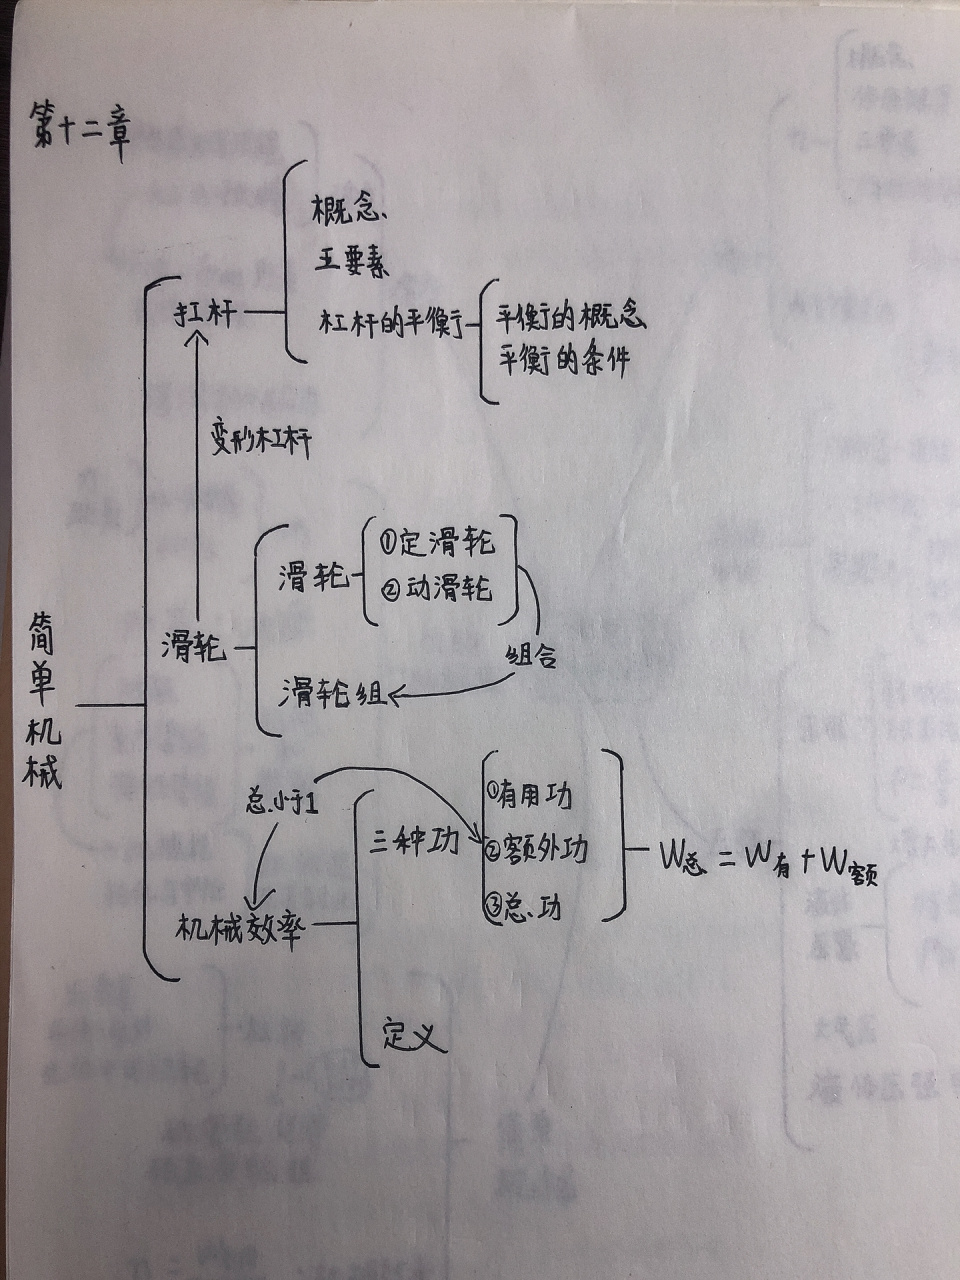 第十二章
概念、
五要素
杠杆
杠杆的平衡
平衡的概念
平衡的条件
变形杠杆
滑轮
①定滑轮
②动滑轮
简单机械
滑轮
组合
滑轮组
总小于1
三种功
①有用功
②额外功
③总功
W总 = W有 + W额
机械效率
定义